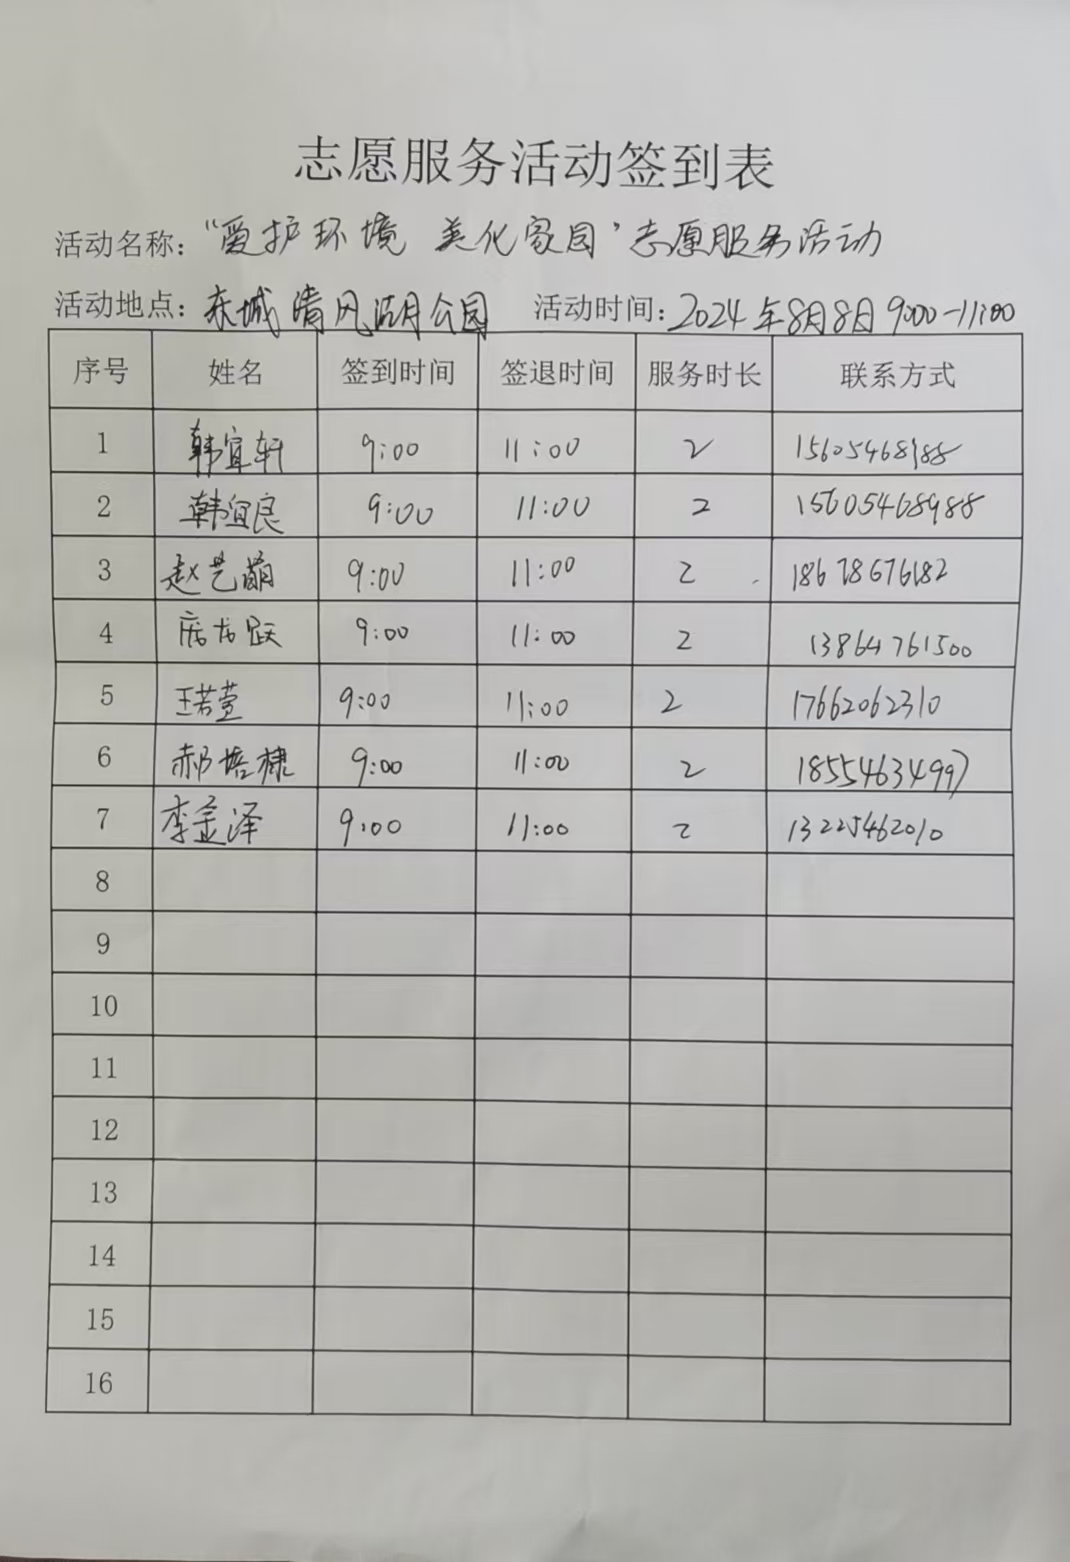 志愿服务活动签到表
活动名称：“爱护环境 美化家园”志愿服务活动
活动地点：东城清风湖公园 活动时间：2024年8月8日 9:00-11:00
序号 姓名 签到时间 签退时间 服务时长 联系方式
1 韩宜轩 9:00 11:00 2 15605468988
2 韩宜良 9:00 11:00 2 15605468988
3 赵艺萌 9:00 11:00 2 18678676182
4 9:00 11:00 2 13864761500
5 王若萱 9:00 11:00 2 17662062310
6 郝培棣 9:00 11:00 2 18554634997
7 李金泽 9:00 11:00 2 13225462010
8
9
10
11
12
13
14
15
16